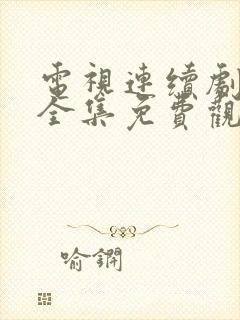 電視連續劇
全集免費觀
喻鐦